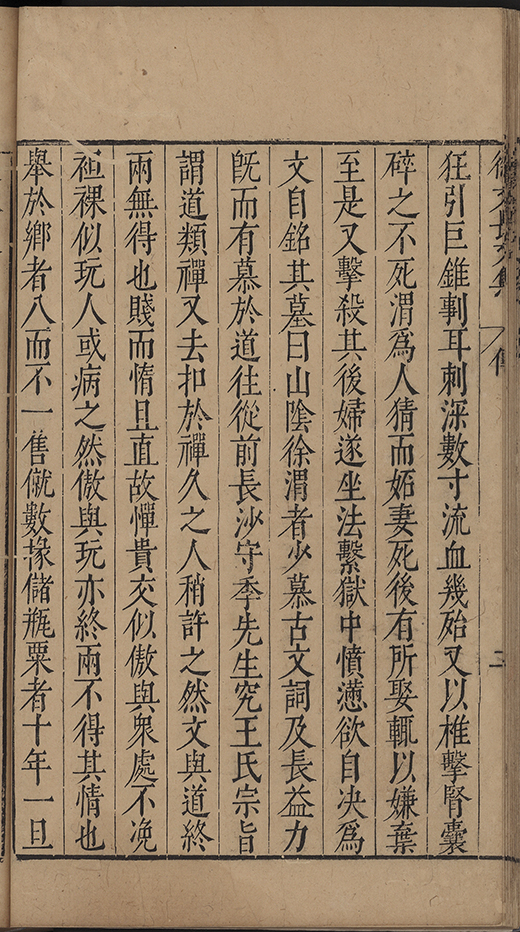 徐文長文集 傳 二
狂引巨錐剚耳刺深數寸流血幾殆又以椎擊腎囊
碎之不死渭爲人猜而妬妻死後有所娶輒以嫌棄
至是又擊殺其後婦遂坐法繫獄中憤懣欲自決爲
文自銘其墓曰山陰徐渭者少慕古文詞及長益力
旣而有慕於道往從前長沙守季先生究王氏宗旨
謂道類禪又去扣於禪久之人稍許之然文與道終
兩無得也賤而惰且直故憚貴交似傲與衆處不浼
袒裸似玩人或病之然傲與玩亦終兩不得其情也
舉於鄉者八而不一售僦數椽儲瓶粟者十年一旦